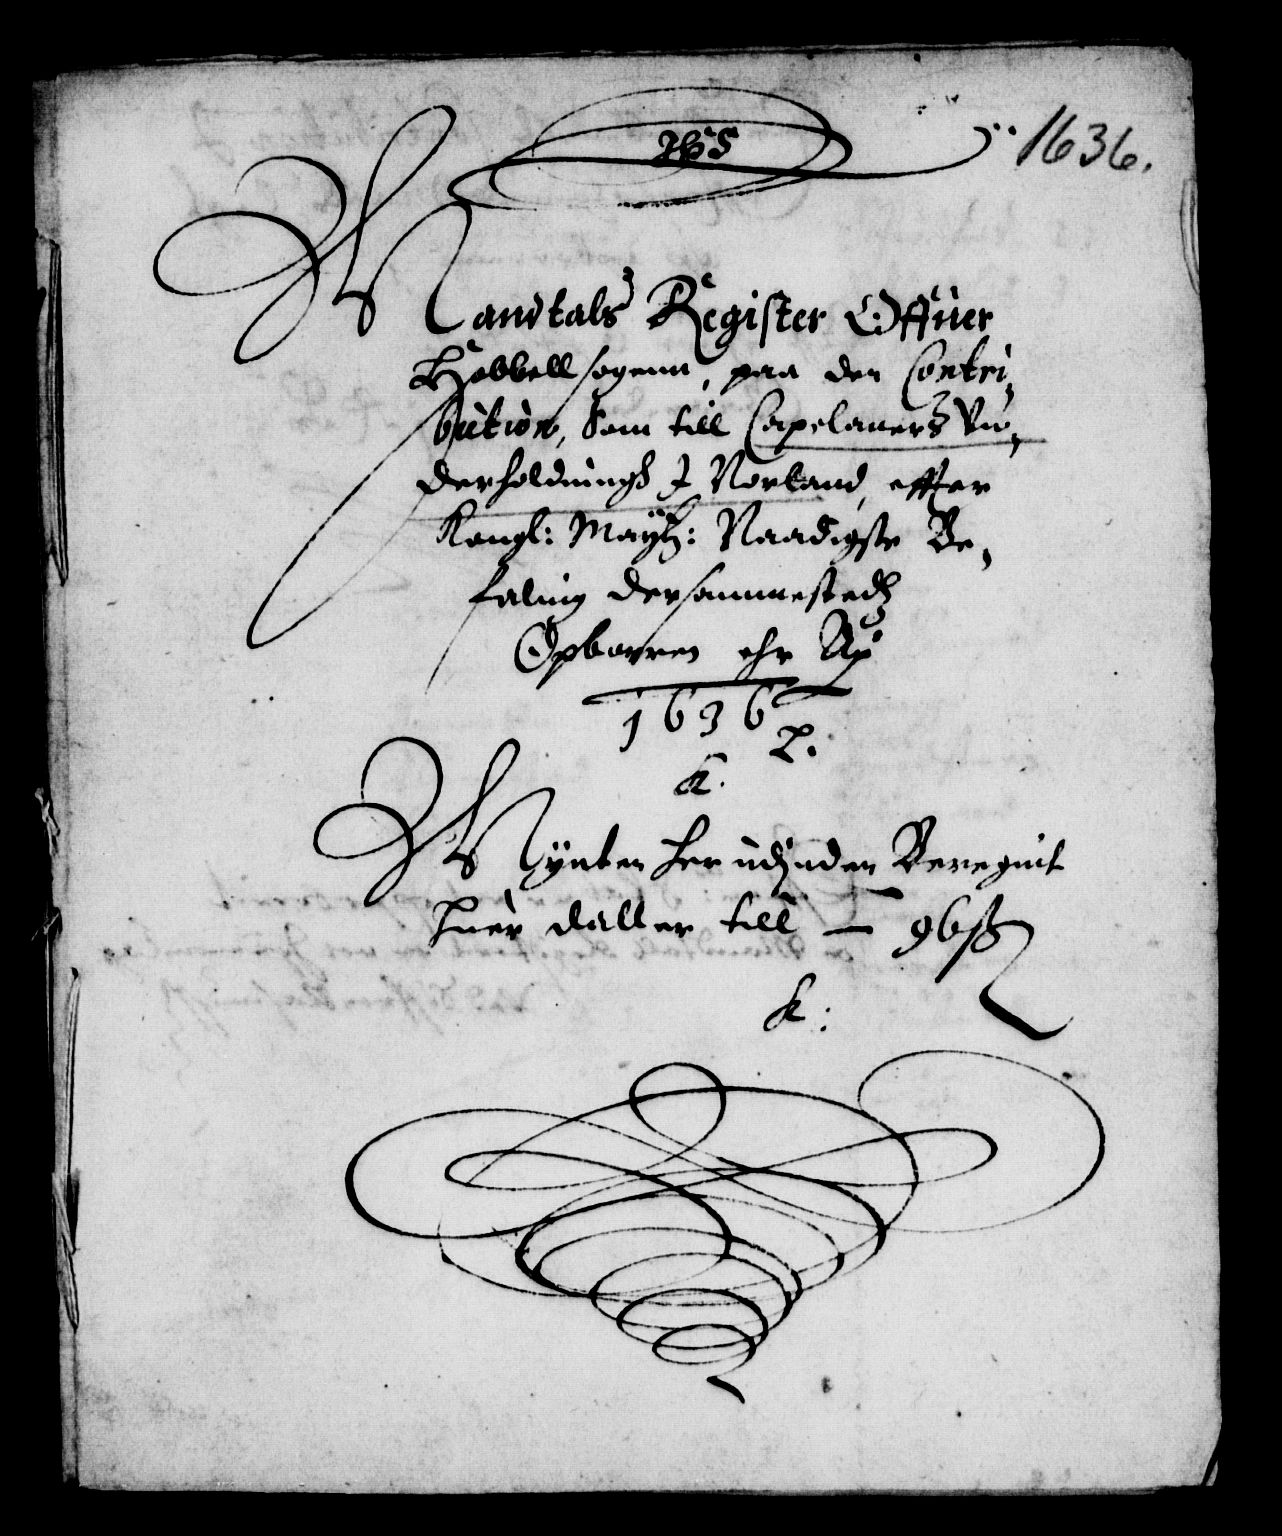 IHS
1636.
Mandtals Register Offuer
Hobbell sogenn, paa den Contri,
bution, Som till Capelaners Vn,
derholdningh I Norland, effter
Kongl: Maytz: Naadigste Be,
faling dersammestedz
Opborren ehr A͠o
1636
L.
K.
Mynten her udjnden Beregnit
huer daller till — 96 ß
K: